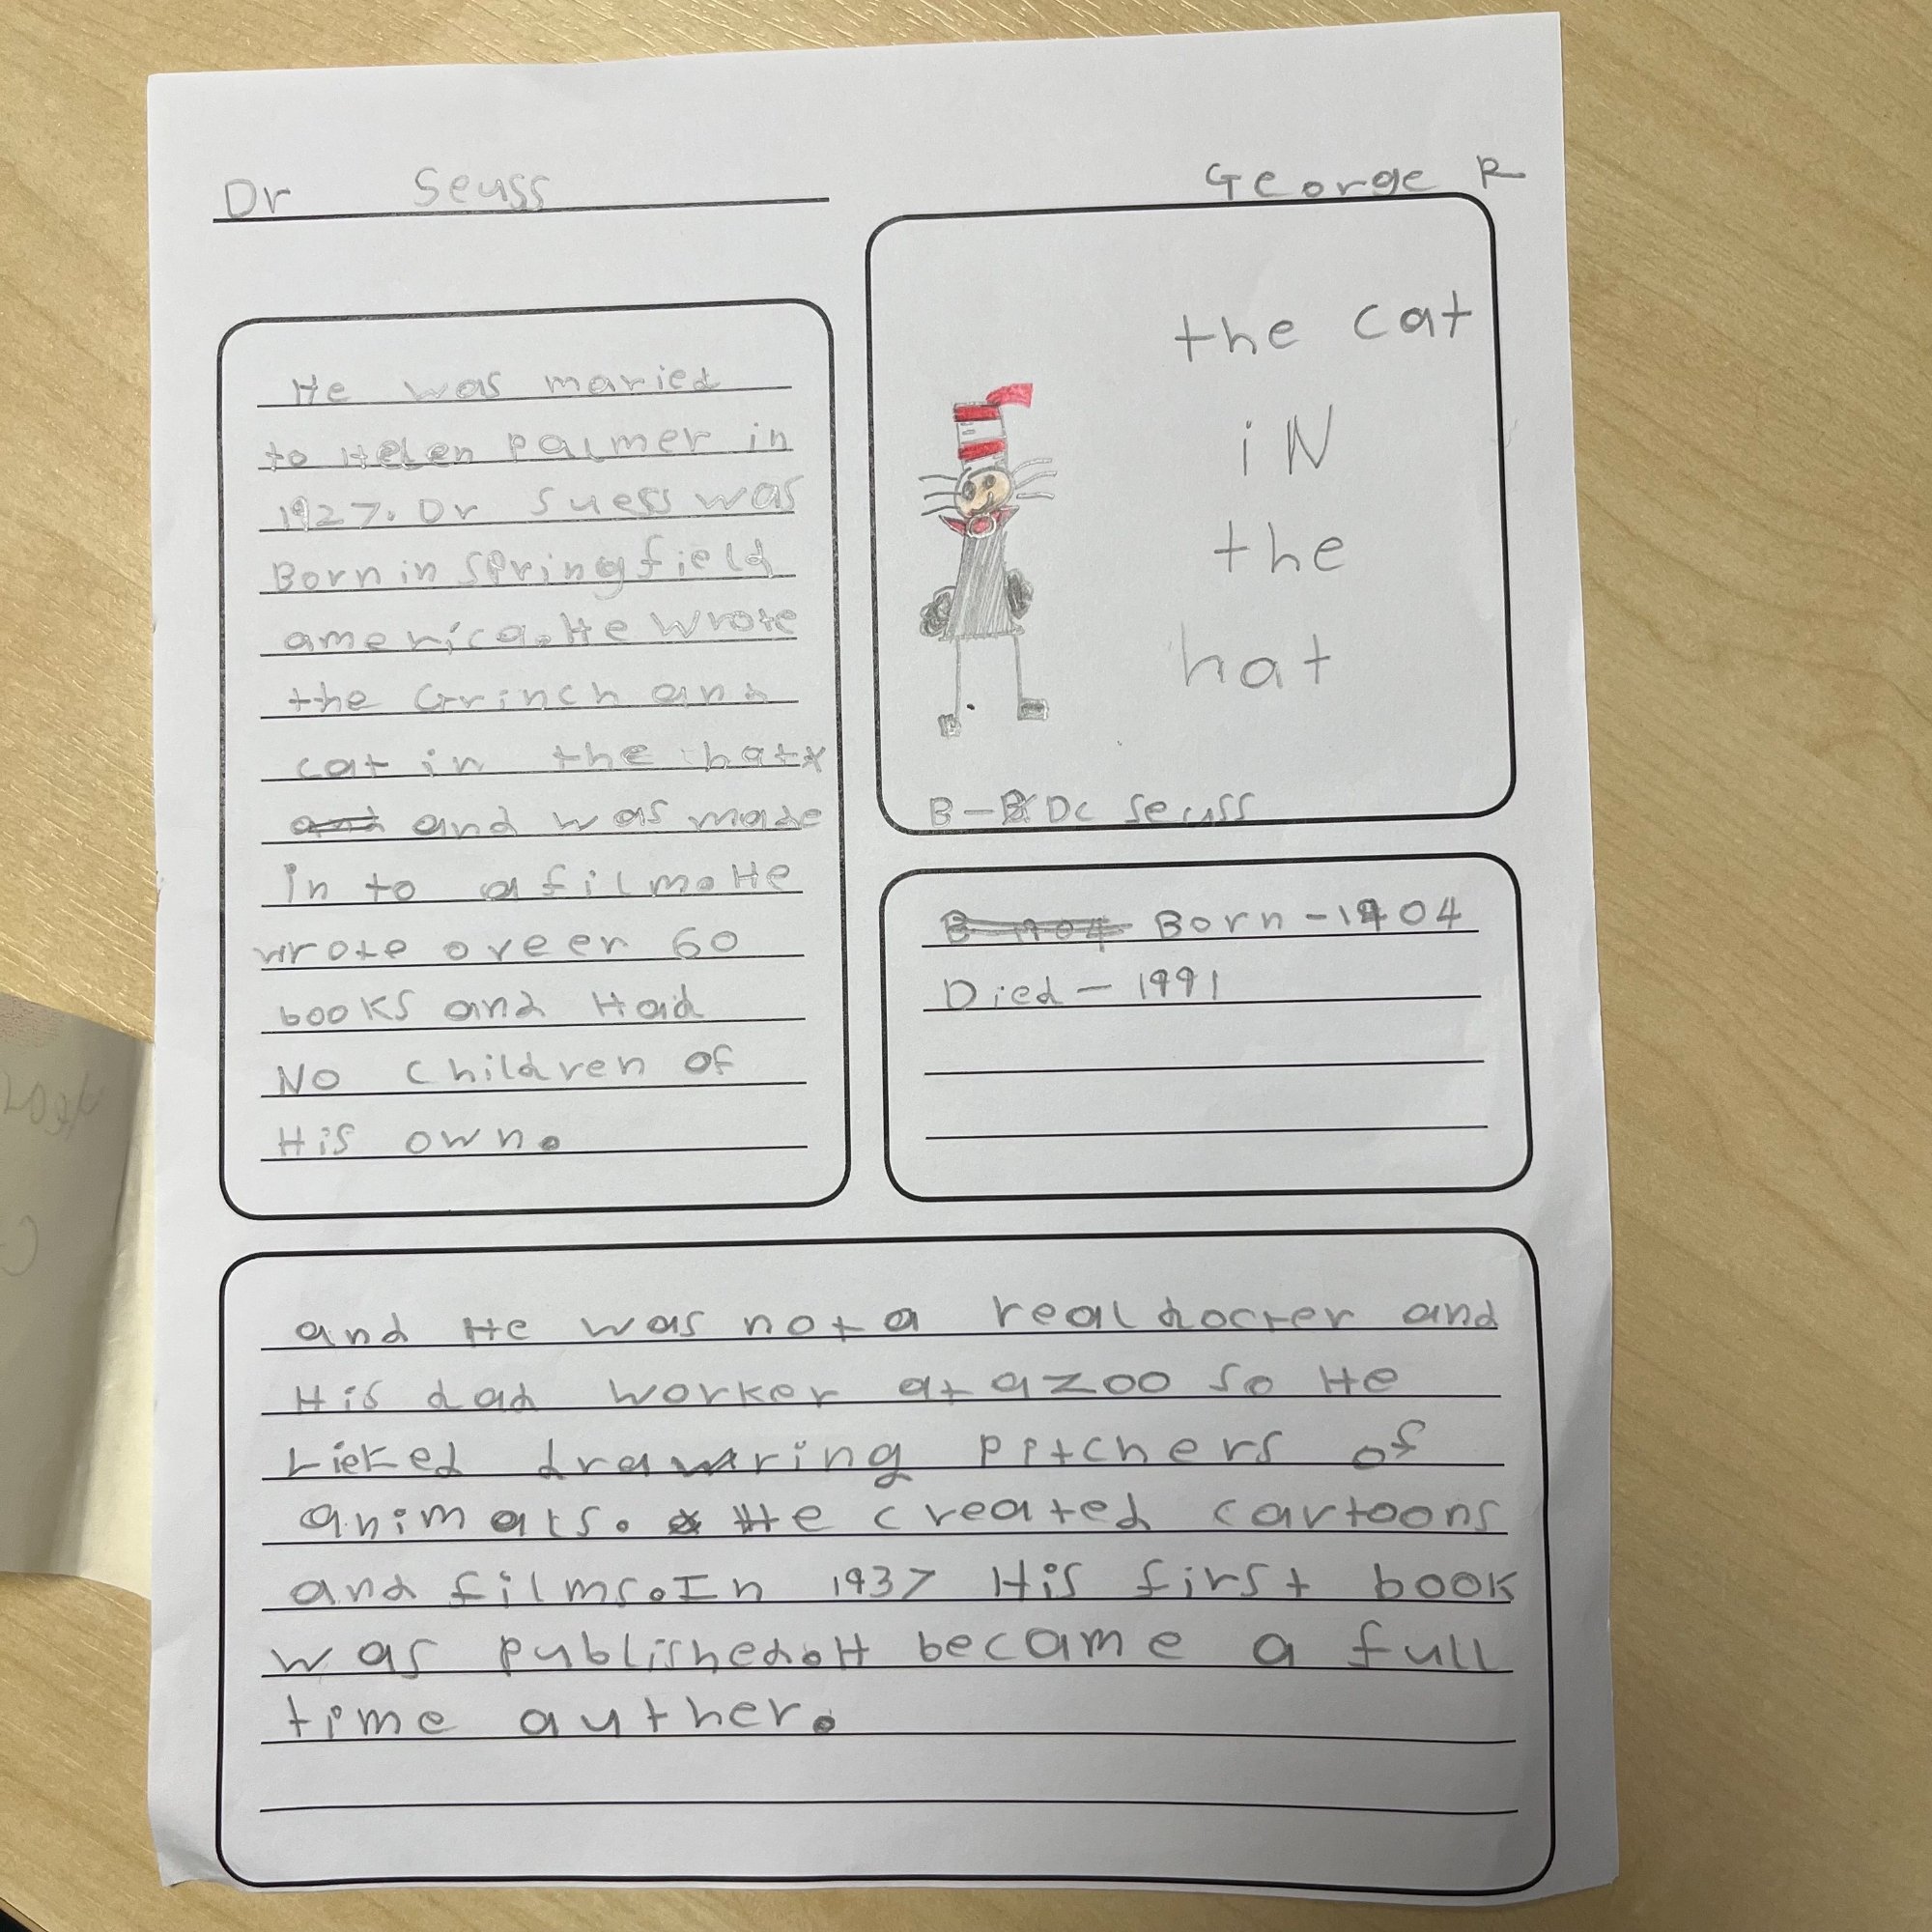 Dr Seuss
George R
He was maried
to Helen Palmer in
1927. Dr Suess was
Born in springfield
america. He wrote
the Grinch and
cat in the hat
and and was made
in to a film. He
wrote oveer 60
books and Had
No children of
His own.
the cat
iN
the
hat
B - Dc Seuss
B 1904 Born - 1904
Died - 1991
and He was not a real docter and
His dad worker at a zoo so He
Licked drawring pitchers of
animals. He created cartoons
and films. In 1937 His first book
was published. H became a full
time auther.